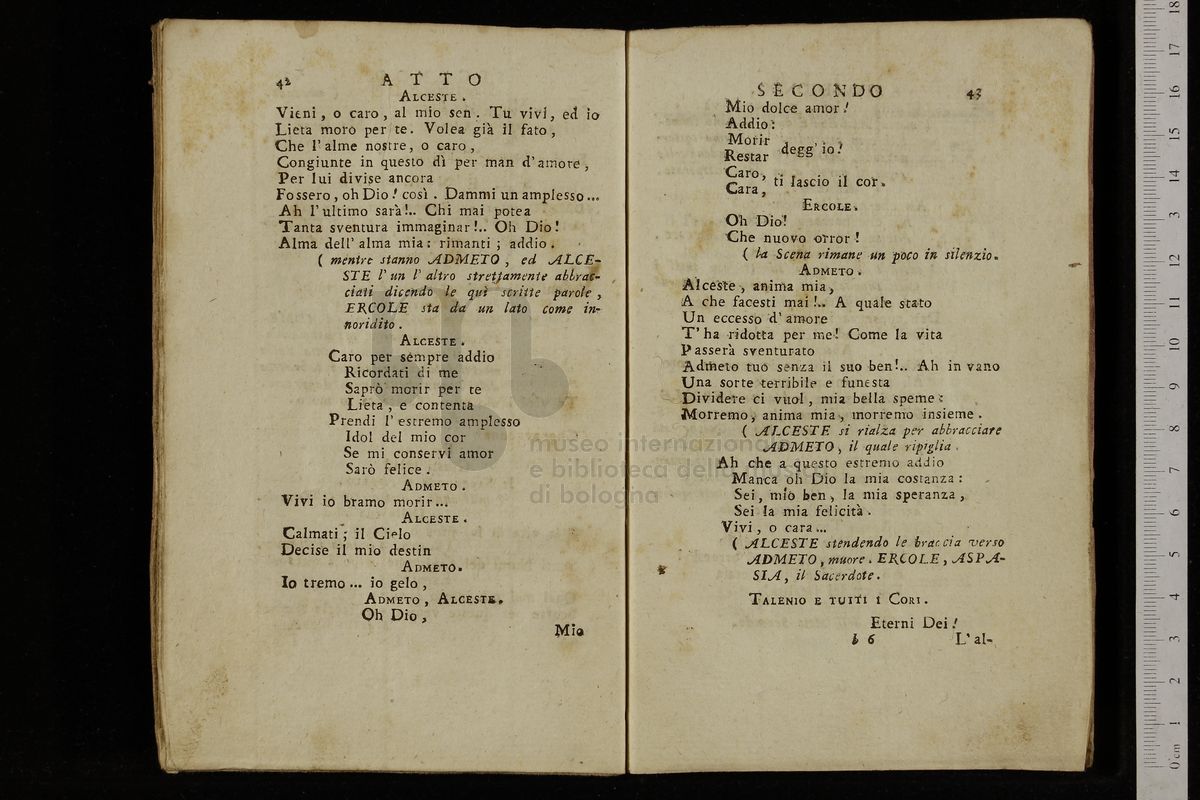 42 ATTO
ALCESTE.
Vieni, o caro, al mio sen. Tu vivi, ed io
Lieta moro per te. Volea già il fato,
Che l'alme nostre, o caro,
Congiunte in questo dì per man d'amore,
Per lui divise ancora
Fossero, oh Dio! così. Dammi un amplesso...
Ah l'ultimo sarà!.. Chi mai potea
Tanta sventura immaginar!.. Oh Dio!
Alma dell'alma mia: rimanti; addio.
( mentre stanno ADMETO, ed ALCE-
STE l'un l'altro strettamente abbrac-
ciati dicendo le quì scritte parole,
ERCOLE sta da un lato come in-
noridito.
ALCESTE.
Caro per sempre addio
Ricordati di me
Saprò morir per te
Lieta, e contenta
Prendi l'estremo amplesso
Idol del mio cor
Se mi conservi amor
Sarò felice.
ADMETO.
Vivi io bramo morir...
ALCESTE.
Calmati; il Cielo
Decise il mio destin
ADMETO.
Io tremo... io gelo,
ADMETO, ALCESTE.
Oh Dio,
Mio
SECONDO 43
Mio dolce amor!
Addio:
Morir
Restar degg'io?
Caro,
Cara, ti lascio il cor.
ERCOLE.
Oh Dio!
Che nuovo orror!
( la Scena rimane un poco in silenzio.
ADMETO.
Alceste, anima mia,
A che facesti mai!.. A quale stato
Un eccesso d'amore
T'ha ridotta per me! Come la vita
Passerà sventurato
Admeto tuo senza il suo ben!.. Ah in vano
Una sorte terribile e funesta
Dividere ci vuol, mia bella speme:
Morremo, anima mia, morremo insieme.
( ALCESTE si rialza per abbracciare
ADMETO, il quale ripiglia.
Ah che a questo estremo addio
Manca oh Dio la mia costanza:
Sei, mio ben, la mia speranza,
Sei la mia felicità.
Vivi, o cara...
( ALCESTE stendendo le braccia verso
ADMETO, muore. ERCOLE, ASPA-
SIA, il Sacerdote.
TALENIO E TUTTI I CORI.
Eterni Dei!
b 6 L'al-
museo internazionale
e biblioteca della musica
di bologna
0 cm 1 2 3 4 5 6 7 8 9 10 11 12 13 14 15 16 17 18